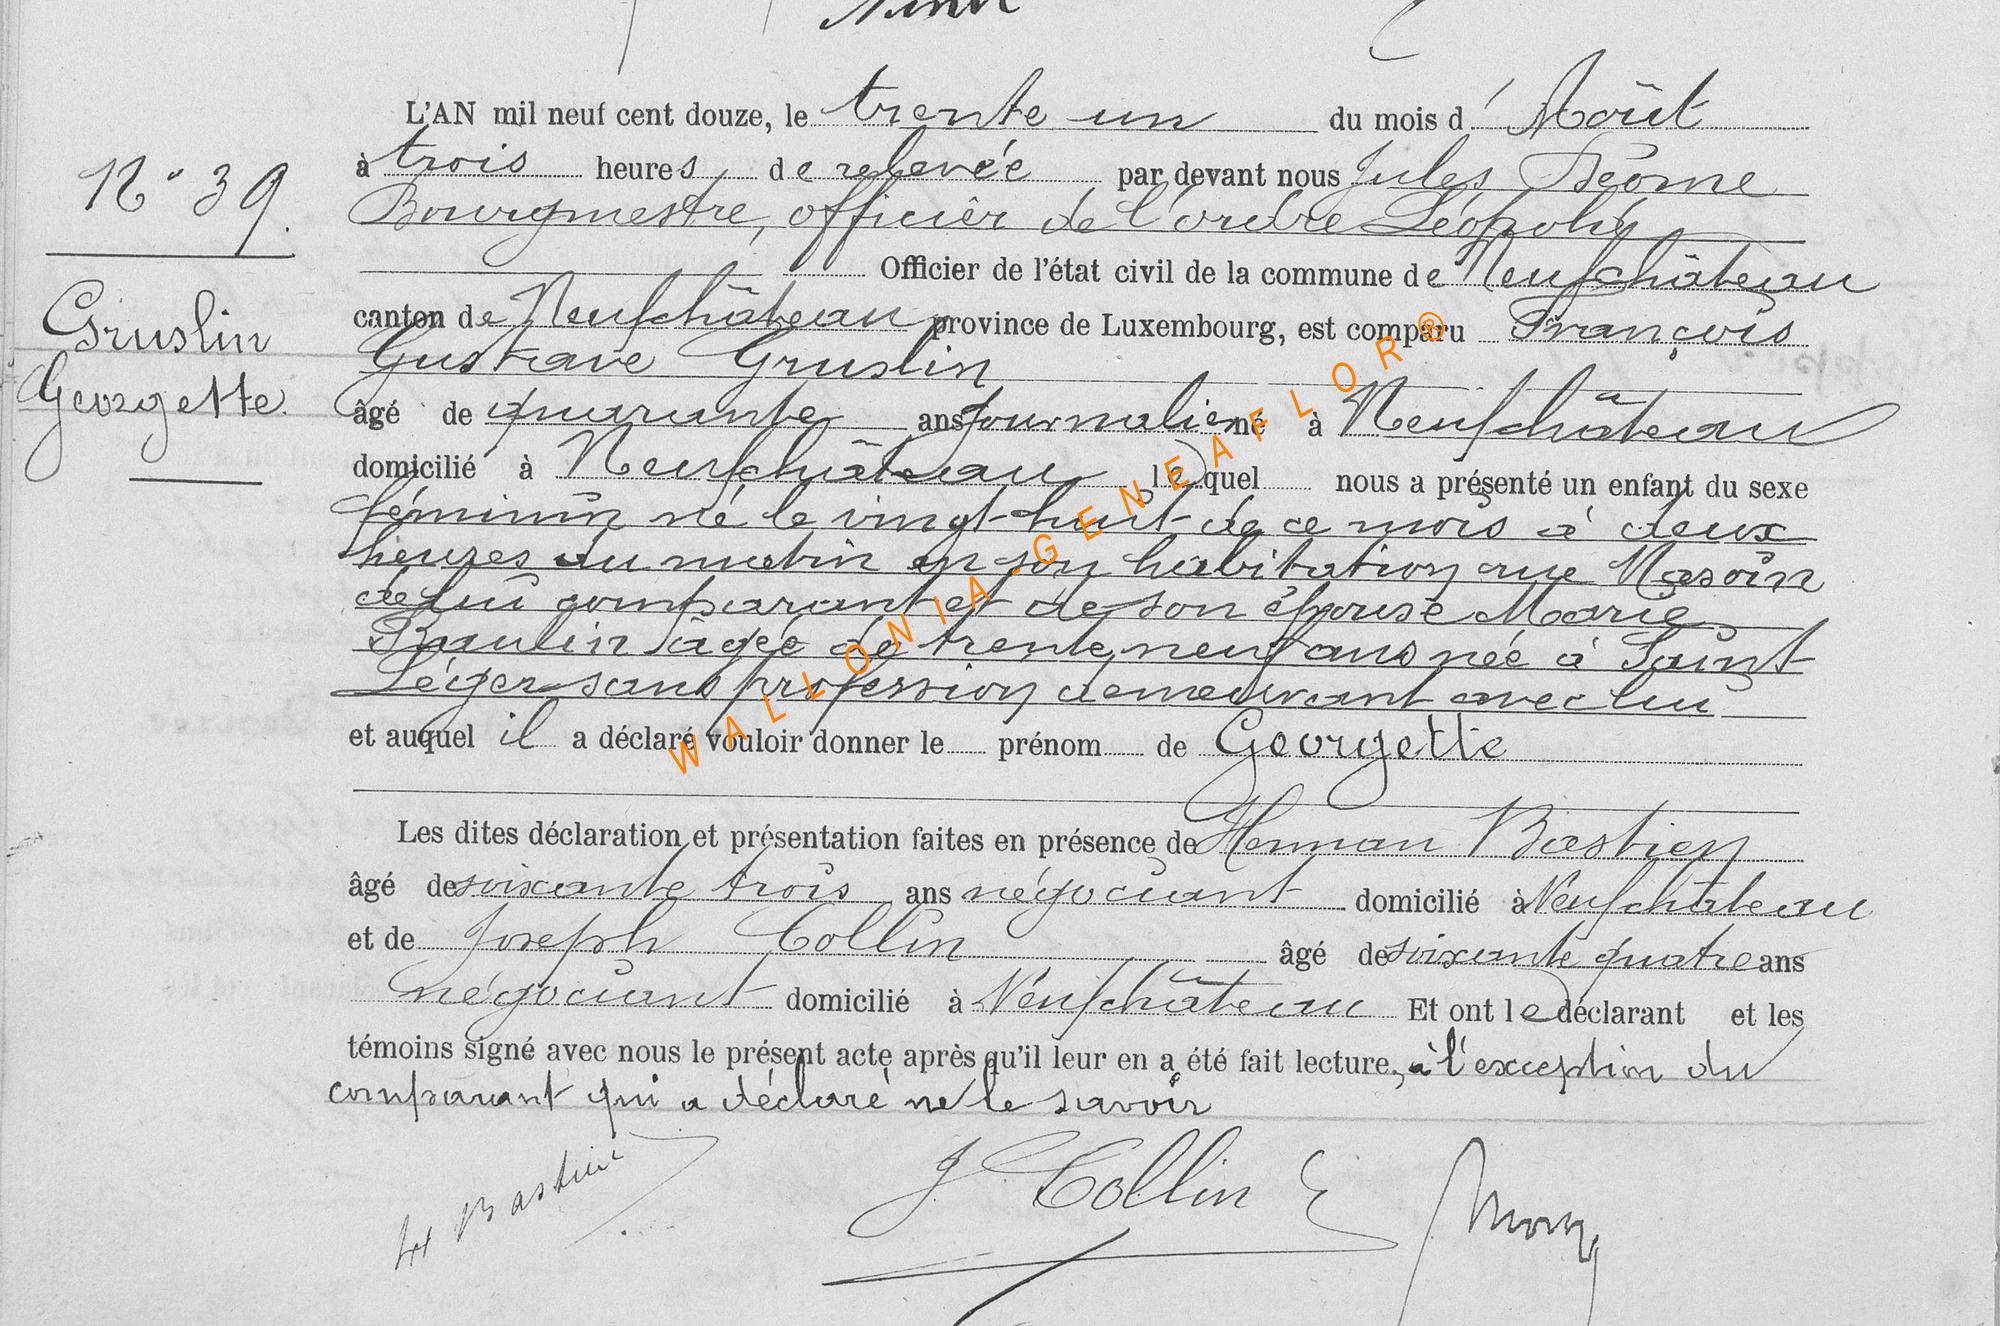 L'AN mil neuf cent douze, le trente un du mois d'Août
N° 39.
à trois heures de relevée par devant nous Jules
Bourgmestre, officier de l'ordre Léopold
Officier de l'état civil de la commune de Neufchâteau
Gruslin
Georgette.
canton de Neufchâteau province de Luxembourg, est comparu François
Gustave Gruslin
âgé de quarante ans Journalier né à Neufchâteau
domicilié à Neufchâteau lequel nous a présenté un enfant du sexe
féminin né le vingt-huit de ce mois à deux
heures du matin en son habitation rue
de lui comparant et de son épouse Marie
âgée de trente neuf ans née à Saint
Léger sans profession demeurant avec lui
et auquel il a déclaré vouloir donner le prénom de Georgette
Les dites déclaration et présentation faites en présence de Herman Bastien
âgé de soixante trois ans négociant domicilié à Neufchâteau
et de Joseph Collin âgé de soixante quatre ans
négociant domicilié à Neufchâteau Et ont le déclarant et les
témoins signé avec nous le présent acte après qu'il leur en a été fait lecture, à l'exception du
comparant qui a déclaré ne le savoir
Bastien
J. Collin
WALLONIA-GENEAFLOR®